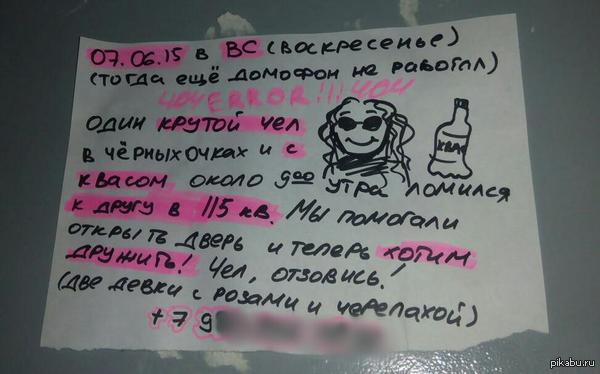 07.06.15 в ВС (воскресенье)
(тогда ещё домофон не работал)
404 ERROR!!! 404
один крутой чел
в чёрных очках и с
КВАС
квасом около 9:00 утра ломился
к другу в 115 кв. Мы помогали
открыть дверь и теперь хотим
дружить! Чел, отзовись!
(две девки с розами и черепахой)
+7 9
pikabu.ru